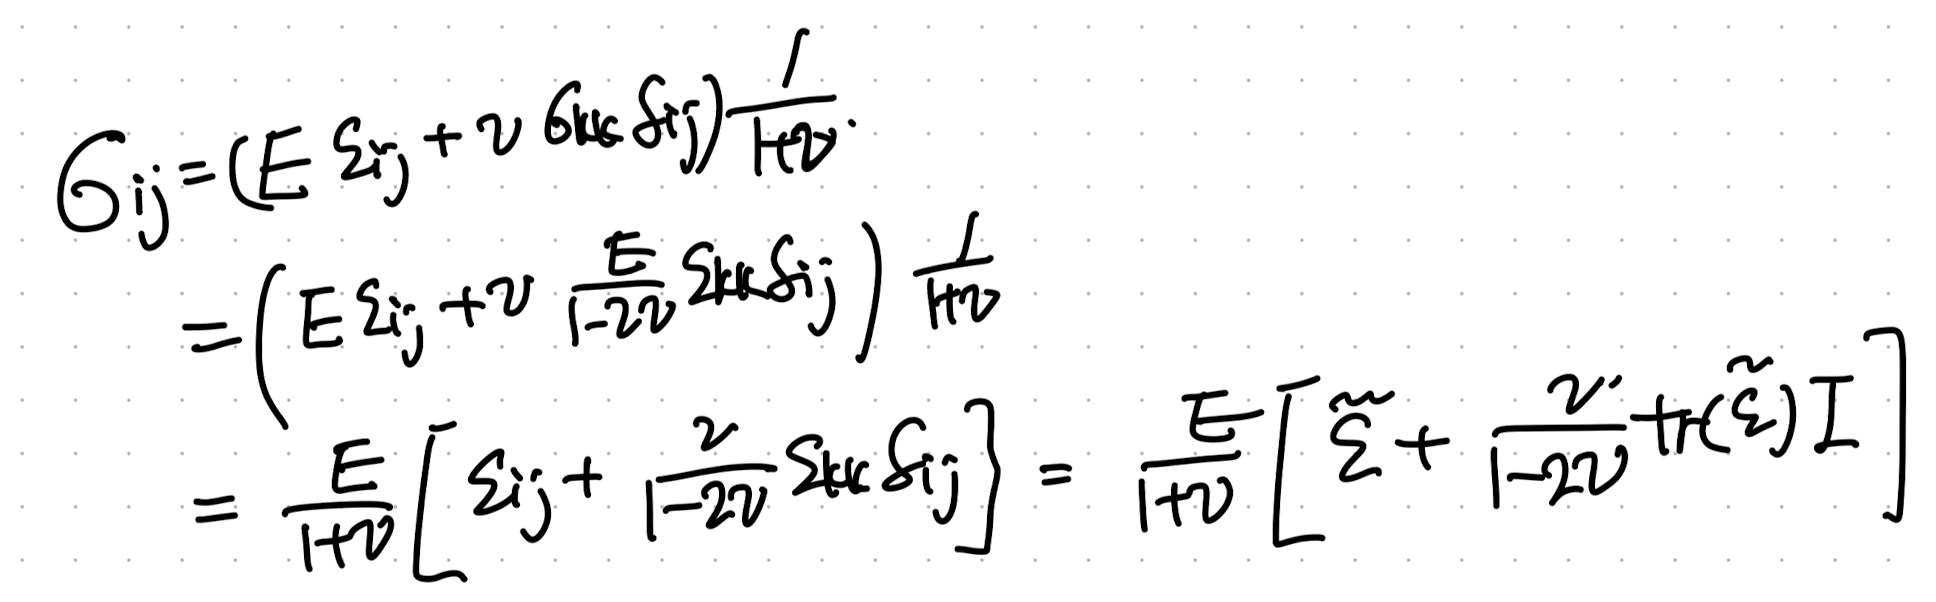 σij = (E εij + ν σkk δij) 1/(1+ν).
= (E εij + ν E/(1-2ν) εkk δij) 1/(1+ν)
= E/(1+ν) [εij + ν/(1-2ν) εkk δij] = E/(1+ν) [ε̃ + ν/(1-2ν) tr(ε̃) I]